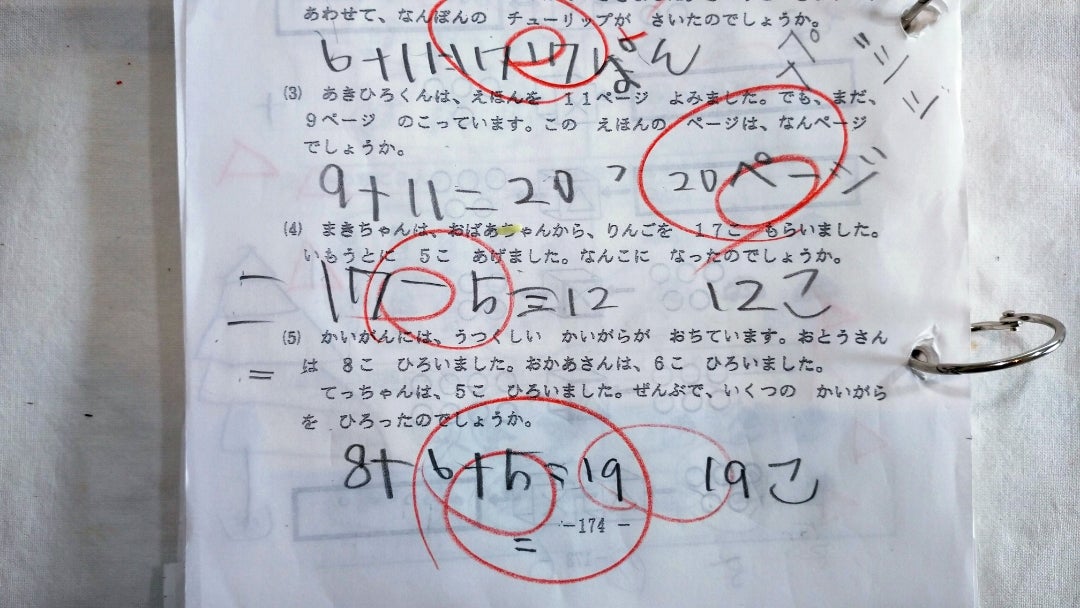 あわせて、なんぼんの チューリップが さいたのでしょうか。
6+11=17 17ぽん
(3) あきひろくんは、えほんを 11ページ よみました。でも、まだ、
9ページ のこっています。この えほんの ページは、なんページ
でしょうか。
9+11=20 20ページ
(4) まきちゃんは、おばあちゃんから、りんごを 17こ もらいました。
いもうとに 5こ あげました。なんこに なったのでしょうか。
17-5=12 12こ
(5) かいがんには、うつくしい かいがらが おちています。おとうさん
は 8こ ひろいました。おかあさんは、6こ ひろいました。
てっちゃんは、5こ ひろいました。ぜんぶで、いくつの かいがら
を ひろったのでしょうか。
8+6+5=19 19こ
-174-
=